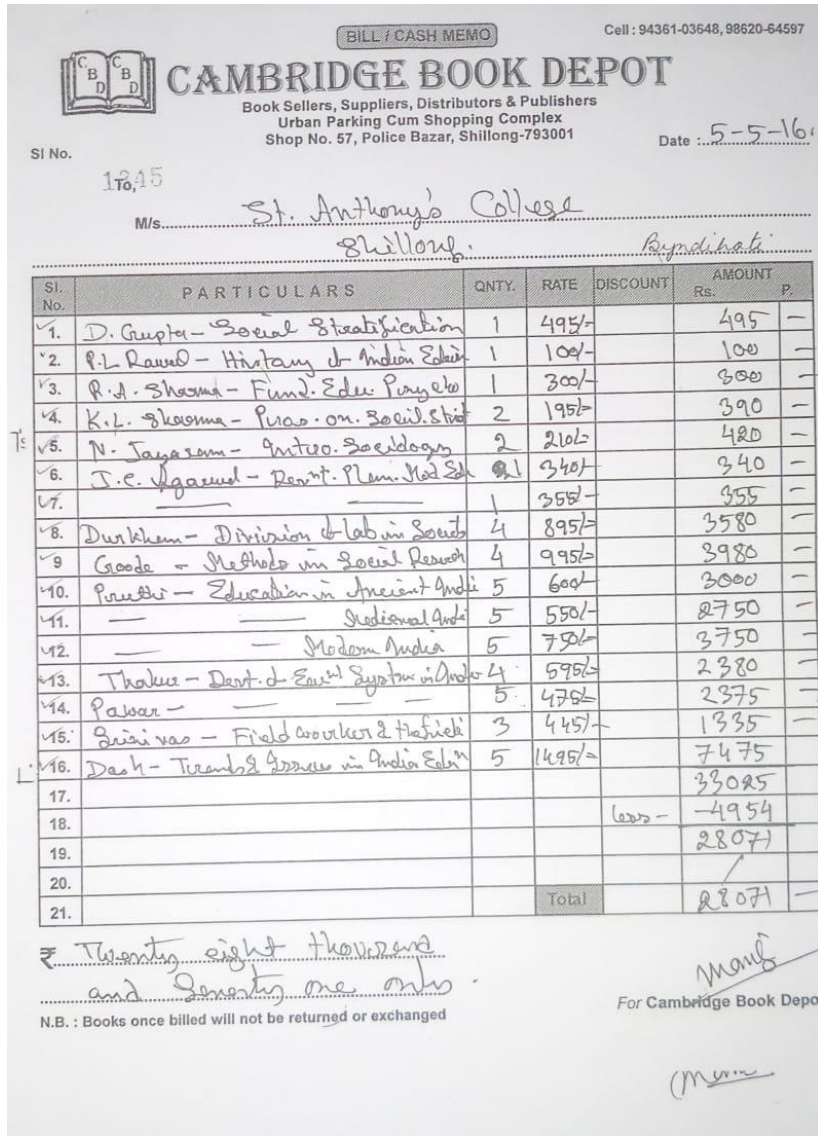 BILL / CASH MEMO
Cell : 94361-03648, 98620-64597
C B D C B D
CAMBRIDGE BOOK DEPOT
Book Sellers, Suppliers, Distributors & Publishers
Urban Parking Cum Shopping Complex
Shop No. 57, Police Bazar, Shillong-793001
Date : 5-5-16
SI No.
To,
M/s. St. Anthony's College
Shillong. Byndihati
SI. No. PARTICULARS QNTY. RATE DISCOUNT AMOUNT Rs. P.
1. D. Gupta - Social Stratification 1 495/- 495 -
2. P.L Rawel - History of Indian 1 100/- 100 -
3. R.A. Sharma - Fund. Edu. 1 300/- 300 -
4. K.L. Sharma - on. 2 195/- 390 -
5. N. Jayaram - Intro. Sociology 2 210/- 420 -
6. J.C. Agarwal - Plann. Mod 1 340/- 340 -
7. — — 1 355/- 355 -
8. Durkhem - Division of lab in 4 895/- 3580 -
9 Goode - Methods in Social Reserch 4 995/- 3980 -
10. Pruthi - Education in Ancient Indi 5 600/- 3000 -
11. — — Medieval Indi 5 550/- 2750 -
12. — — Modern India 5 750/- 3750 -
13. Thakur - System in 4 595/- 2380 -
14. Pawar - — — — 5 475/- 2375 -
15. Srinivas - Field worker & 3 445/- 1335 -
16. Dash - Trends & Issues in India 5 1495/- 7475
17. 33025
18. less - -4954
19. 28071
20.
21. Total 28071 -
₹ Twenty eight thousand
and Seventy one only.
For Cambridge Book Depo
N.B. : Books once billed will not be returned or exchanged